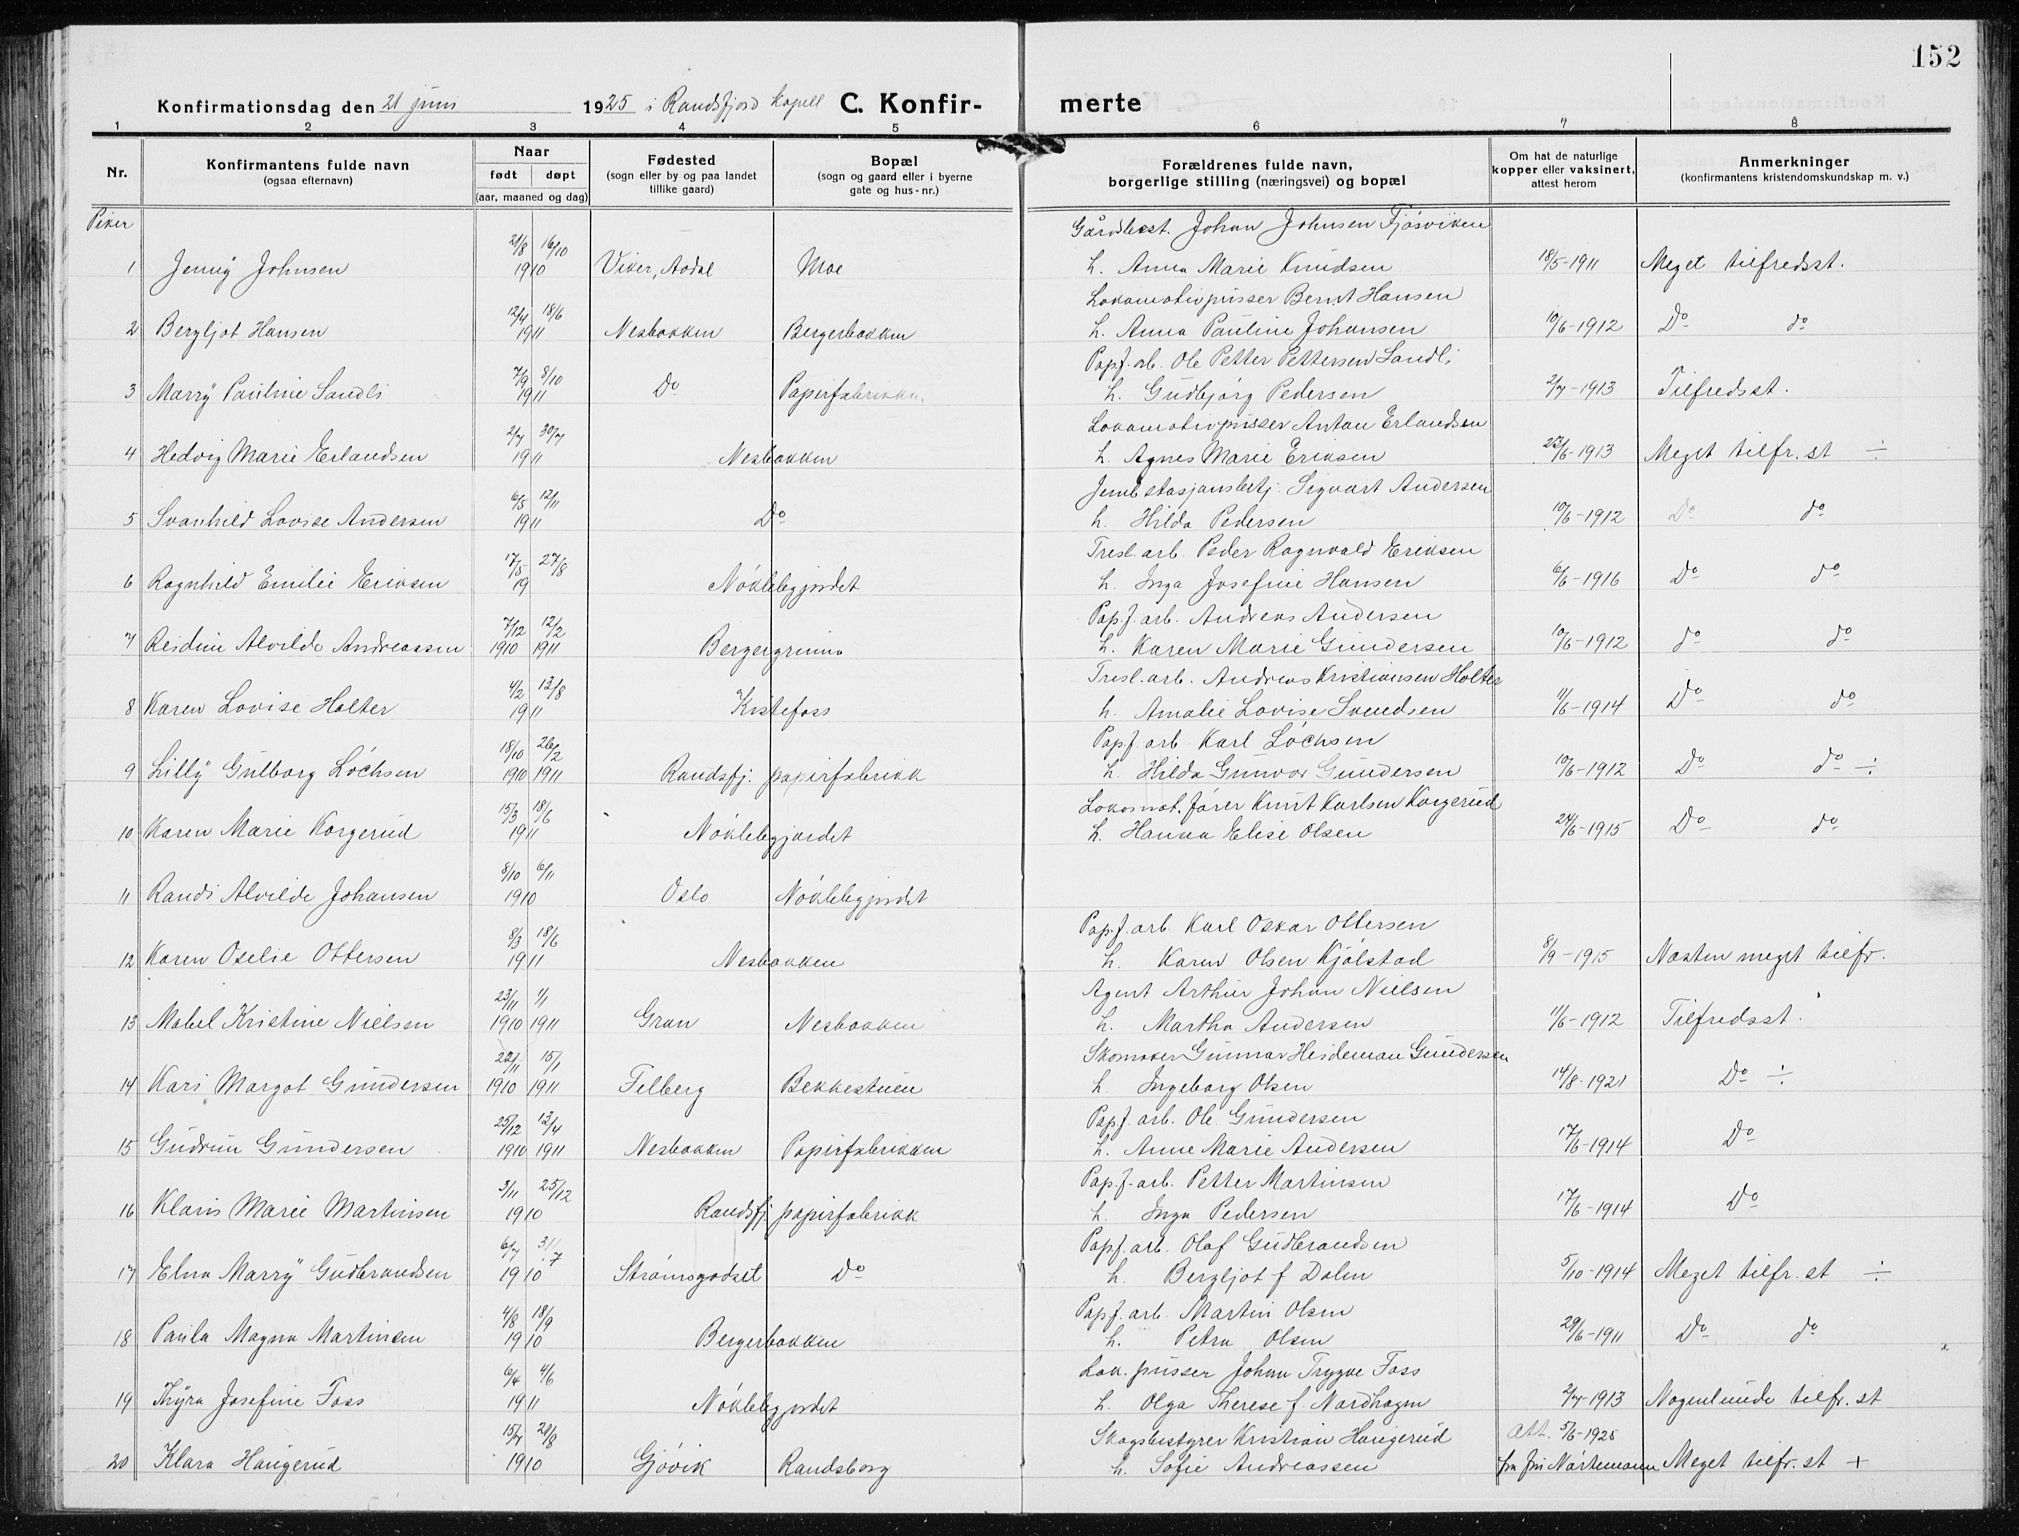 152
Konfirmationsdag den 21 juni 1925 i Randsfjord kapell C. Konfir- merte
1 2 3 4 5 6 7 8
Nr. Konfirmantens fulde navn (ogsaa efternavn) Naar født døpt (aar, maaned og dag) Fødested (sogn eller by og paa landet tillike gaard) Bopæl (sogn og gaard eller i byerne gate og hus-nr.) Forældrenes fulde navn, borgerlige stilling (næringsvei) og bopæl Om hat de naturlige kopper eller vaksinert, attest herom Anmerkninger (konfirmantens kristendomskundskap m. v.)
Piker
Gårdbest. Johan Johnsen Fjøsviken
1 Jenny Johnsen 21/8 16/10 1910 Viker, Aadal Moe h. Anna Marie Knudsen 18/5-1911 Meget tilfredsst.
Lokomotivpusser Bernt Hansen
2 Bergljot Hansen 12/4 18/6 1911 Nesbakken Bergerbakken h. Anna Pauline Johansen 10/6-1912 Do do
Papf. arb. Ole Petter Pettersen Sandli
3 Marry Pauline Sandli 7/9 8/10 1911 Do Papirfabrikken h. Gudbjørg Pedersen 2/7-1913 Tilfredsst.
Lokomotivpusser Anton Erlandsen
4 Hedvig Marie Erlandsen 2/7 30/7 1911 Nesbakken h. Agnes Marie Eriksen 23/6-1913 Meget tilfr. st ÷
Jernb stasjonsbetj. Sigvart Andersen
5 Svanhild Lovise Andersen 6/5 12/11 1911 Do h. Hilda Pedersen 10/6-1912 Do do
Tresl. arb. Peder Ragnvald Eriksen
6 Ragnhild Emilie Eriksen 17/5 27/8 19 Nøklebygjordet h. Inga Josefine Hansen 6/6-1916 Do do
Pap.f. arb. Andreas Andersen
7 Reidun Alvilde Andreassen 7/12 12/2 1910 1911 Bergergrinna h. Karen Marie Gundersen 10/6-1912 do do
Tresl. arb. Andreas Kristiansen Holter
8 Karen Lovise Holter 4/2 13/8 1911 Kistefoss h. Amalie Lovise Svendsen 11/6-1914 Do do
Papf. arb. Karl Løchsen
9 Lilly Gulborg Løchsen 18/10 26/2 1910 1911 Randsfj. papirfabrikk h. Hilda Gunvor Gundersen 10/6-1912 Do do ÷
Lokomot. fører Knut Karlsen Korgerud
10 Karen Marie Korgerud 15/3 18/6 1911 Nøklebygjordet h. Hanna Elise Olsen 24/6-1915 Do do
11 Randi Alvilde Johansen 8/10 6/11 1910 Oslo Nøklebygjordet
Pap.f. arb. Karl Oskar Ottersen
12 Karen Oselie Ottersen 8/3 18/6 1911 Nesbakken h. Karen Olsen Kjølstad 8/9-1915 Næsten meget tilfr.
Agent Arthur Johan Nielsen
13 Mabel Kristine Nielsen 23/11 1/1 1910 1911 Gran Nesbakken h. Martha Andersen 11/6-1912 Tilfredsst.
Skomaker Gunnar Heideman Gundersen
14 Kari Margot Gundersen 22/11 15/1 1910 1911 Felberg Bekkestuen h. Ingeborg Olsen 14/8-1921 Do ÷
Papf. arb. Ole Gundersen
15 Gudrun Gundersen 25/12 13/4 1910 1911 Nesbakken Papirfabrikken h. Anne Marie Andersen 17/6-1914 Do
Pap.f. arb. Petter Martinsen
16 Klaris Marie Martinsen 3/11 25/12 1910 Randsfj. papirfabrikk h. Inga Pedersen 17/6-1914 Do
Papf. arb. Olaf Gudbrandsen
17 Elna Marry Gudbrandsen 6/7 1910 Strømsgodset Do h. Bergljot f Dalen 5/10-1914 Meget tilfr. st ÷
Papf. arb. Martin Olsen
18 Paula Magna Martinsen 4/8 18/9 1910 Bergerbakken h. Petra Olsen 29/6-1911 Do do
Lok. pusser Johan Trygve Foss
19 Thyra Josefine Foss 6/4 4/6 1911 Nøklebygjordet h. Olga Therese f. Nordhagen 2/7-1913 Nogenlunde tilfr. st
Skogbestyrer Kristian Haugerud Att. 5/6-1925
20 Klara Haugerud 15/7 21/8 1910 Gjøvik Randsborg h. Sofie Andreassen fra fru Nørtemann Meget tilfr. st +